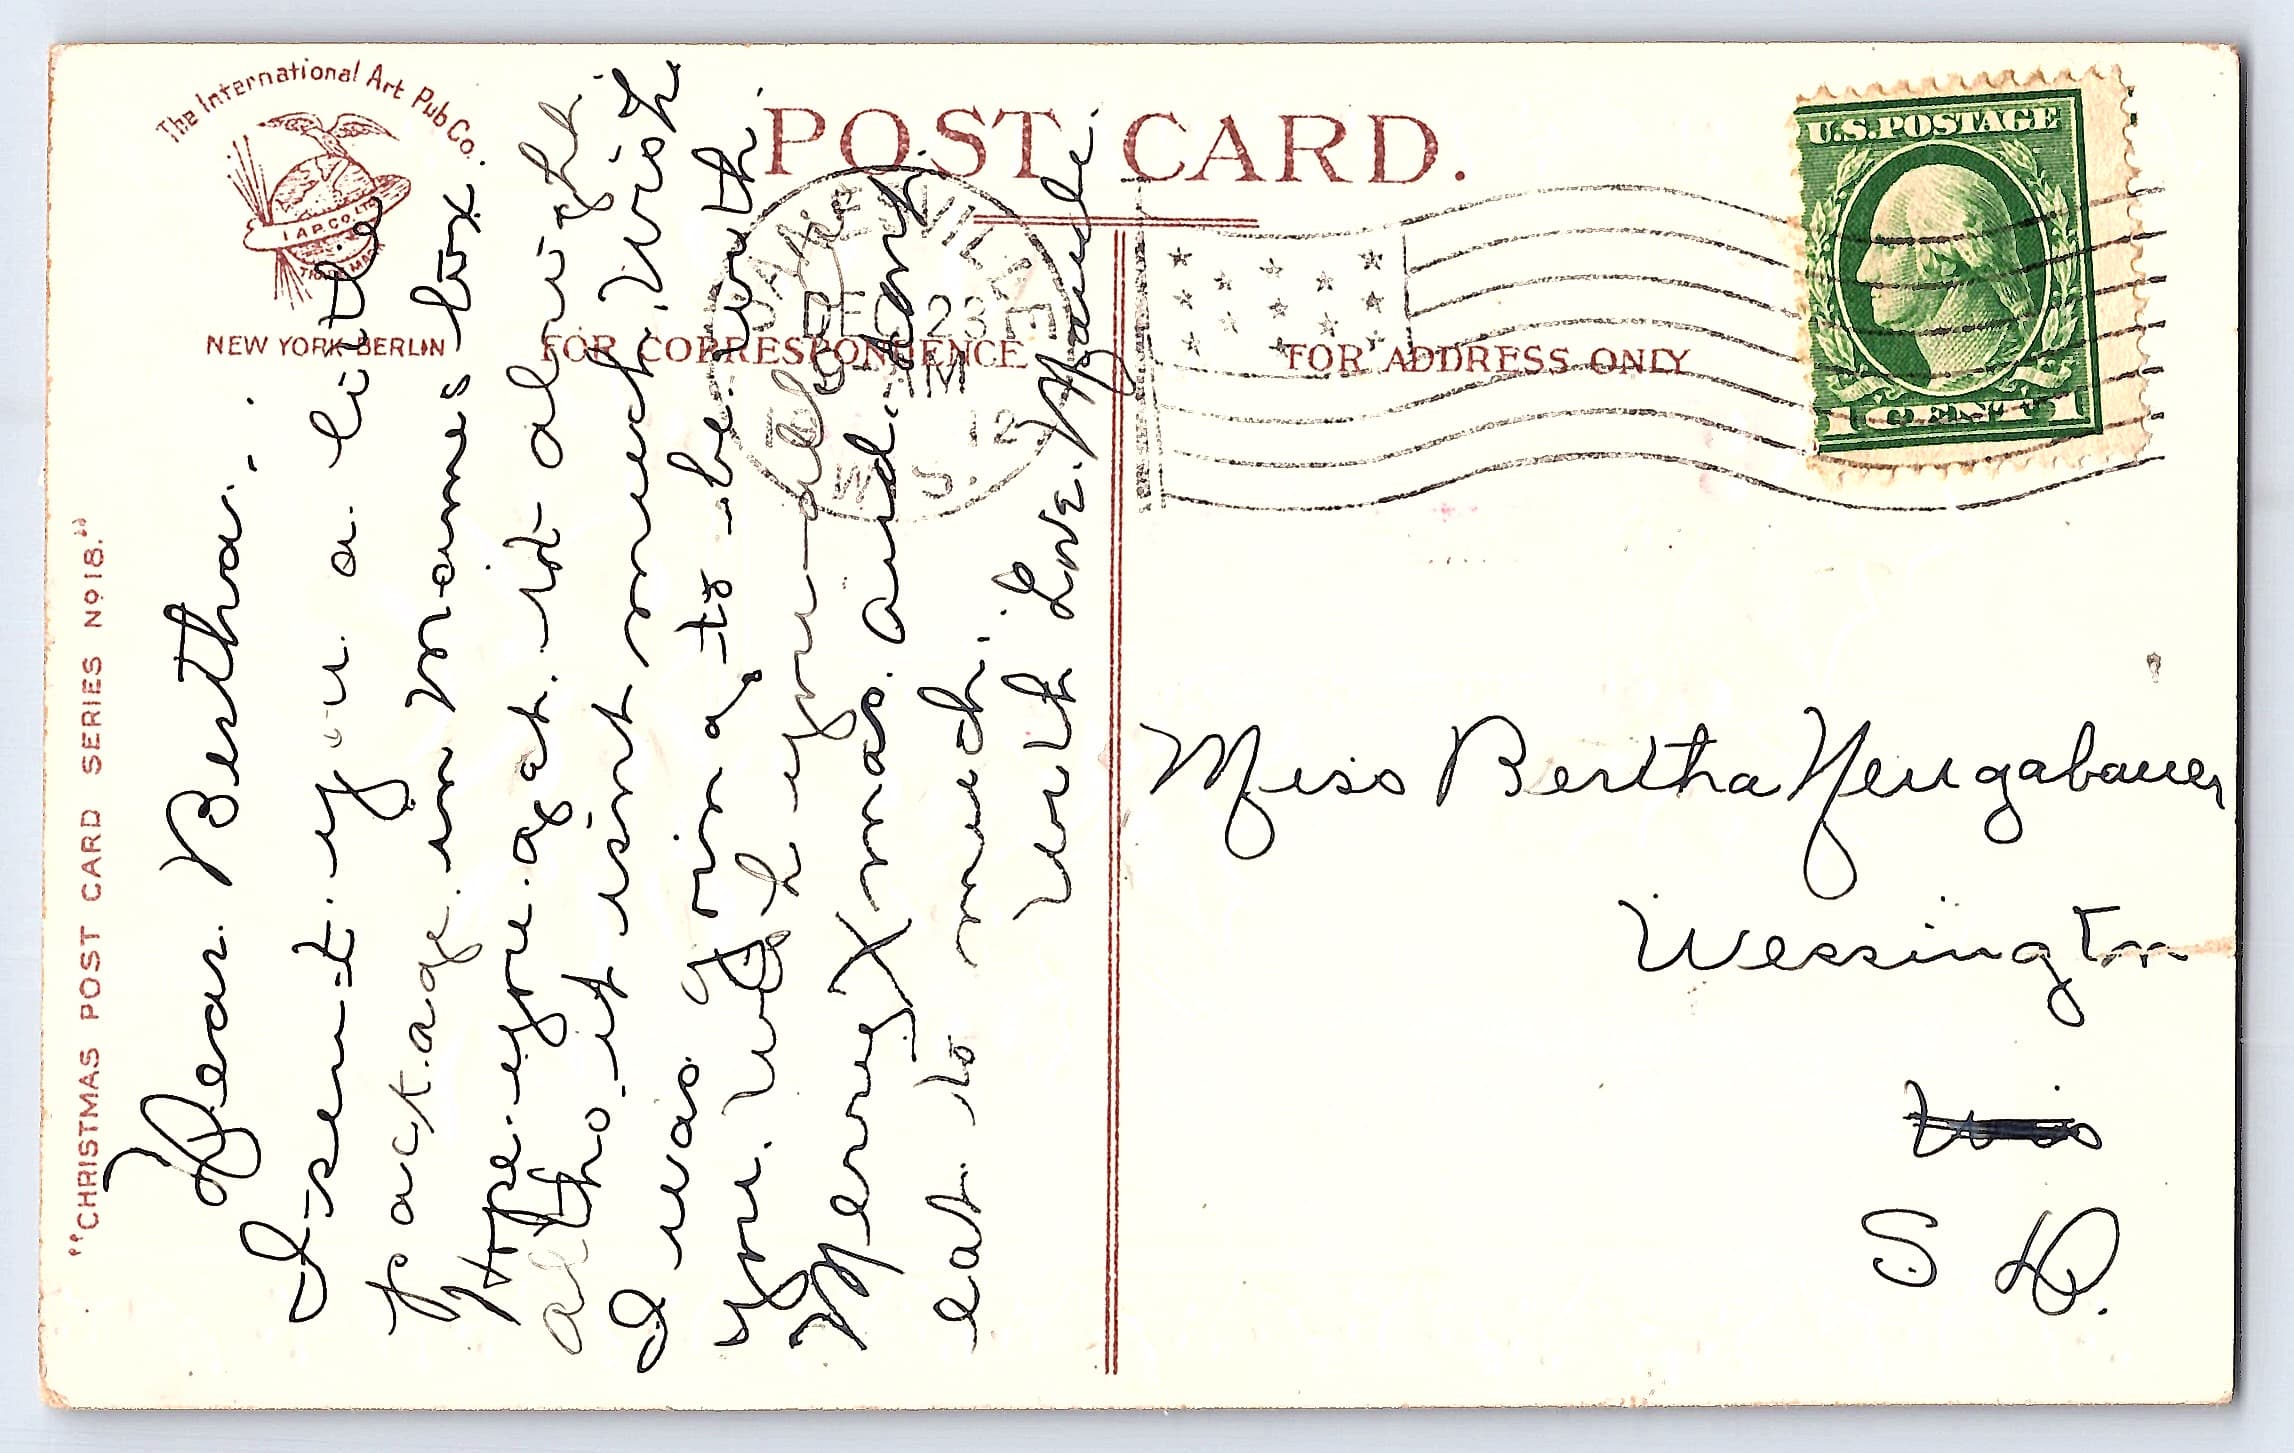 The International Art Pub Co.
I.A.P.CO. LTD
TRADE MARK
NEW YORK-BERLIN
"CHRISTMAS POST CARD SERIES No 18."
POST CARD.
FOR CORRESPONDENCE
FOR ADDRESS ONLY
JANESVILLE
DEC 23
9-AM
1912
WIS.
U.S. POSTAGE
1 CENT 1
Dear Bertha.
I sent you a little
package in Mames box.
Hope you get it alright
altho it isnt much. Wish
I was going to be with
you. Wish you all
Merry Xmas. and. dont
eat to much.
With Love. Maude.
Miss Bertha Neugabauer
Wessington
Wis
S D.